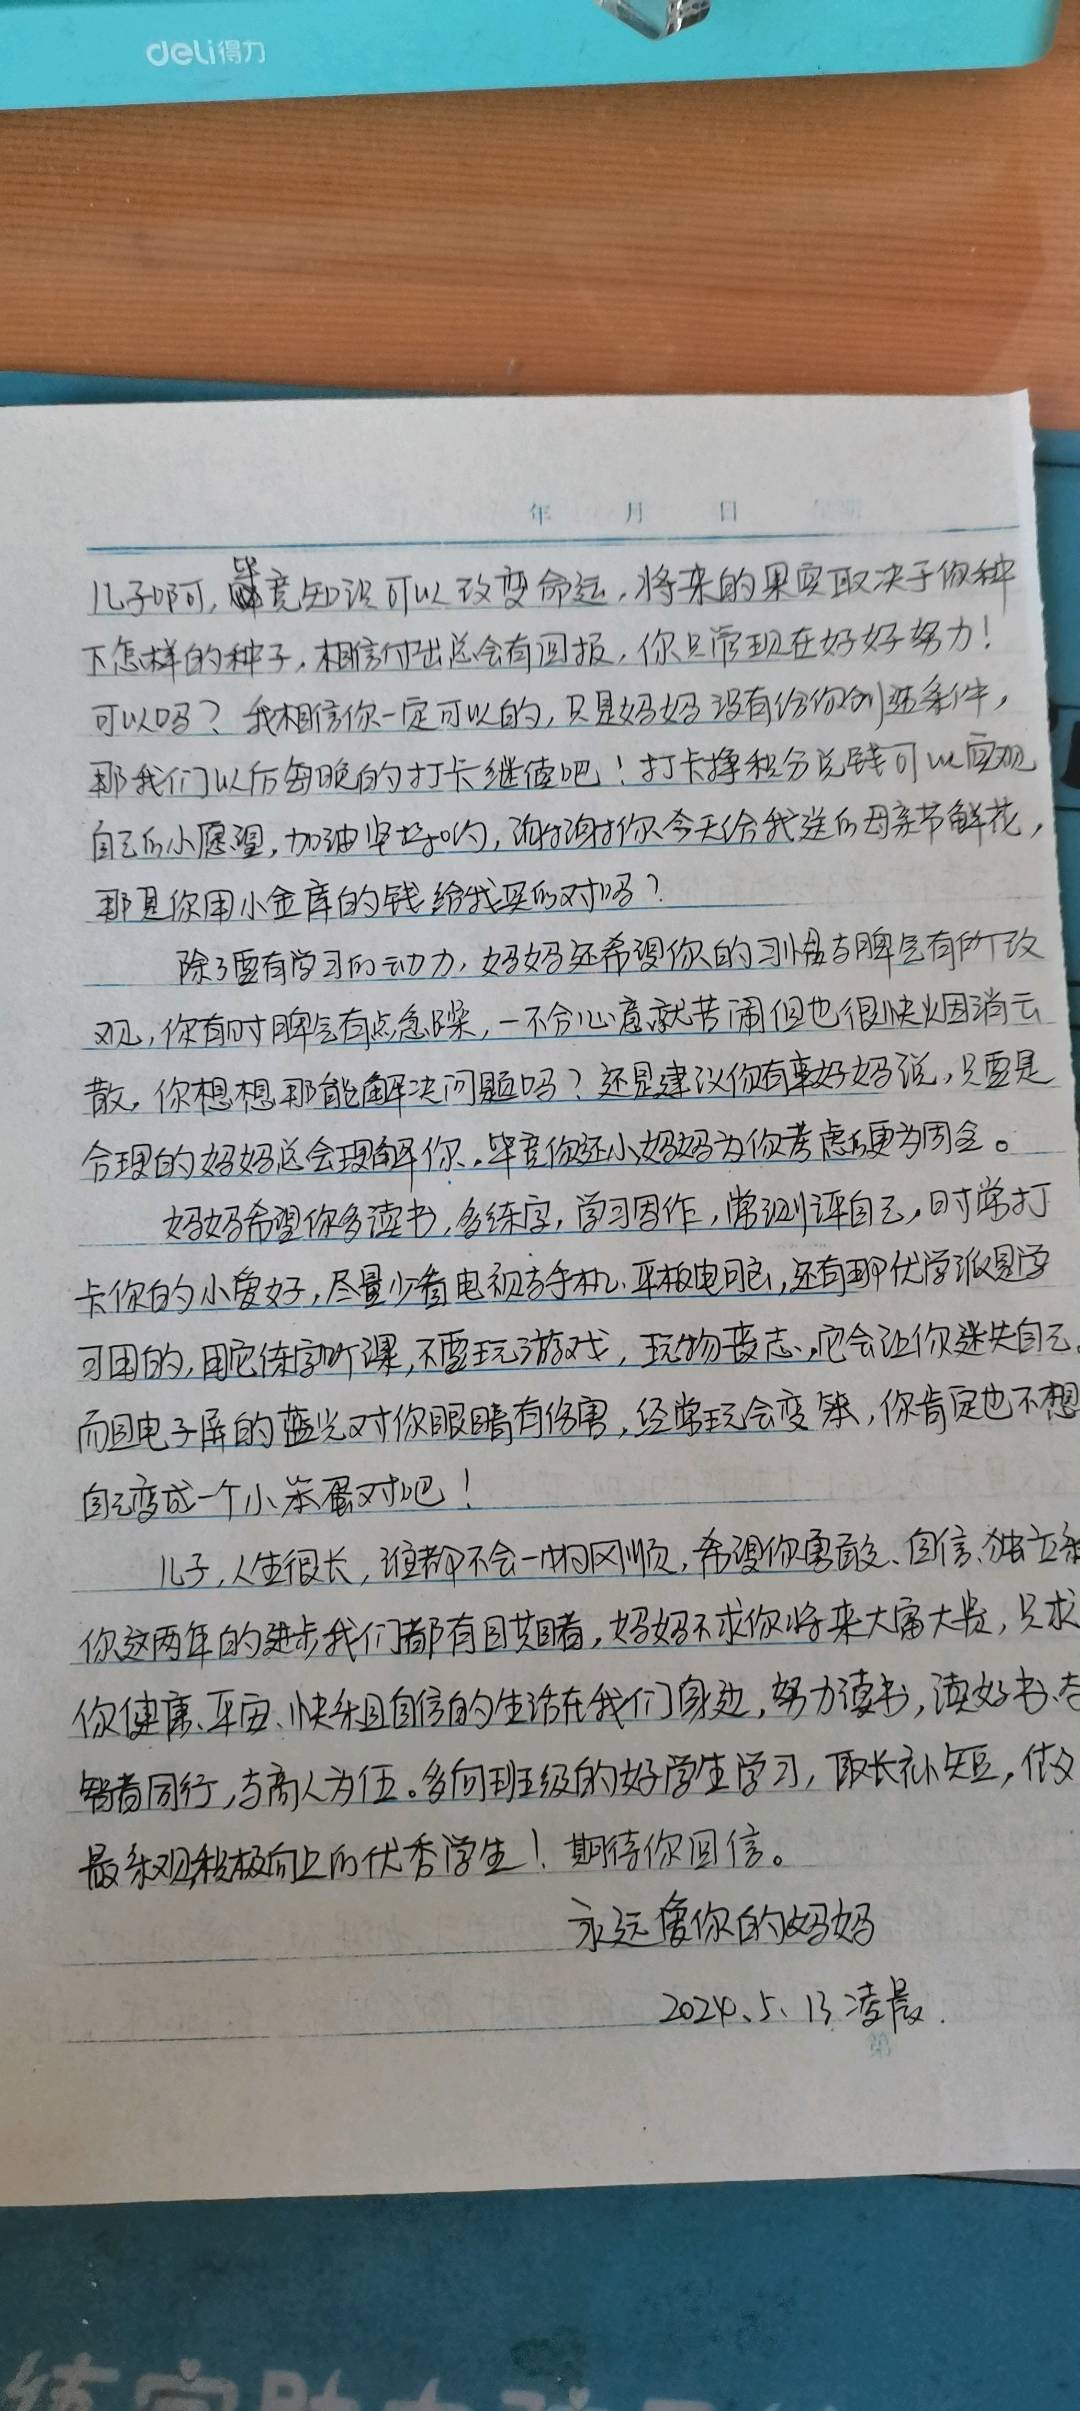 deli得力
年 月 日
儿子啊，毕竟知识可以改变命运，将来的果实取决于你种
下怎样的种子，相信付出总会有回报，你只管现在好好努力！
可以吗？我相信你一定可以的，只是妈妈没有给你创造条件，
那我们以后每晚的打卡继续吧！打卡挣积分兑钱可以实现
自己的小愿望，加油坚持哟，谢谢你今天给我送的母亲节鲜花，
那是你用小金库的钱给我买的对吗？
除了要有学习的动力，妈妈还希望你的习惯与脾气有所改
观，你有时脾气有点急躁，一不合心意就苦闹但也很快烟消云
散，你想想那能解决问题吗？还是建议你有事好好说，只要是
合理的妈妈总会理解你，毕竟你还小妈妈为你考虑更为周全。
妈妈希望你多读书，多练字，学习写作，常测评自己，时常打
卡你的小爱好，尽量少看电视与手机、平板电脑，还有那优学派是学
习用的，用它练字听课，不要玩游戏，玩物丧志，它会让你迷失自己。
而且电子屏的蓝光对你眼睛有伤害，经常玩会变笨，你肯定也不想
自己变成一个小笨蛋对吧！
儿子，人生很长，谁都不会一帆风顺，希望你勇敢、自信、独立
你这两年的进步我们都有目共睹，妈妈不求你将来大富大贵，只求
你健康、平安、快乐且自信的生活在我们身边，努力读书，读好书、与
智者同行，与高人为伍。多向班级的好学生学习，取长补短，做
最乐观积极向上的优秀学生！期待你回信。
永远爱你的妈妈
2024、5、13凌晨.